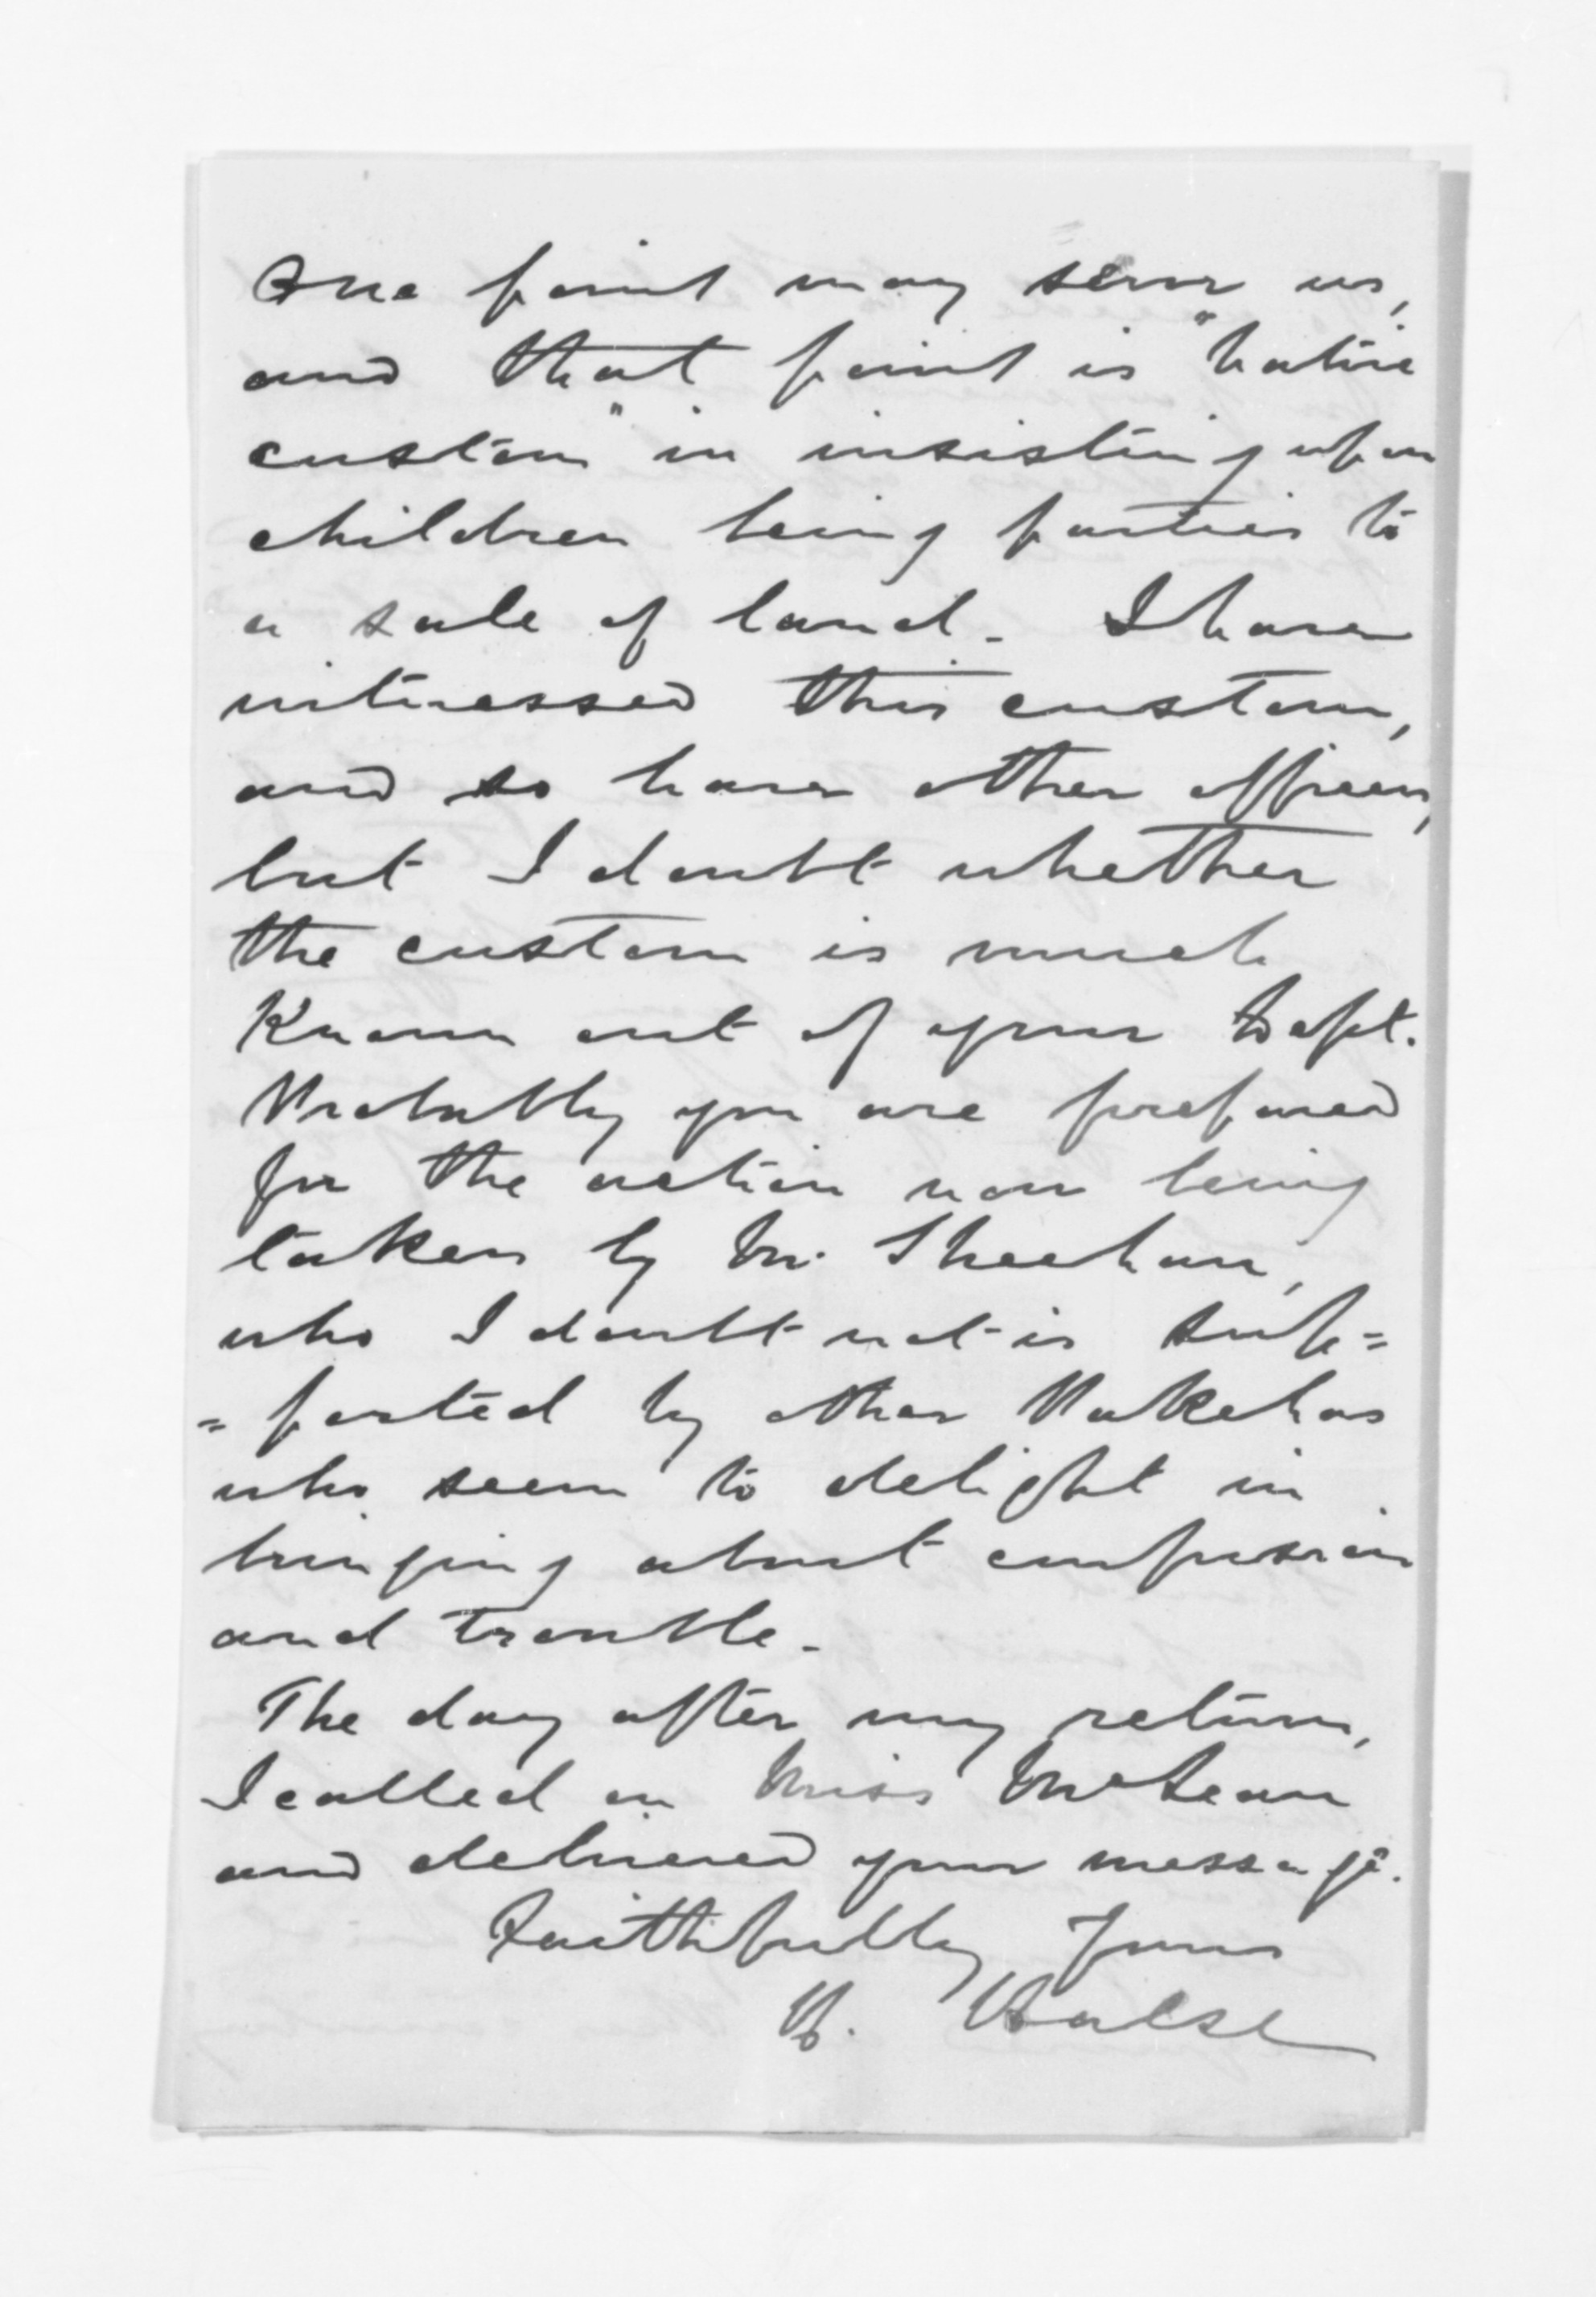 One point may serve us,
and that point is "Native
custom" in insisting upon
children being parties to
a sale of land. I have
witnessed this custom,
and so have other officers,
but I doubt whether
the custom is much
known out of your Dept.
Probably you are prepared
for the action now being
taken by Mr. Sheehan,
who I doubt not is sup=
=ported by other Pakehas
who seem to delight in
bringing about confusion
and trouble.
The day after my return,
I called on Miss McLean
and delivered your message.
Faithfully Yours
H. Halse